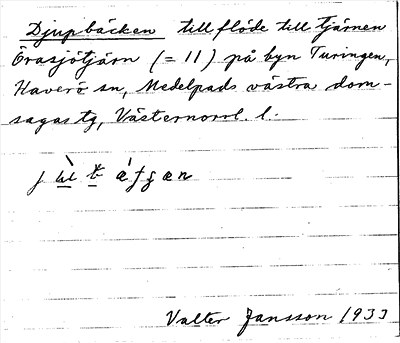 Djupbäcken tillflöde till tjärnen
Örasjötjärn (= 11) på byn Turingen,
Haverö sn, Medelpads västra dom-
sagas tg, Västernorrl. l.
Valter Jansson 1933